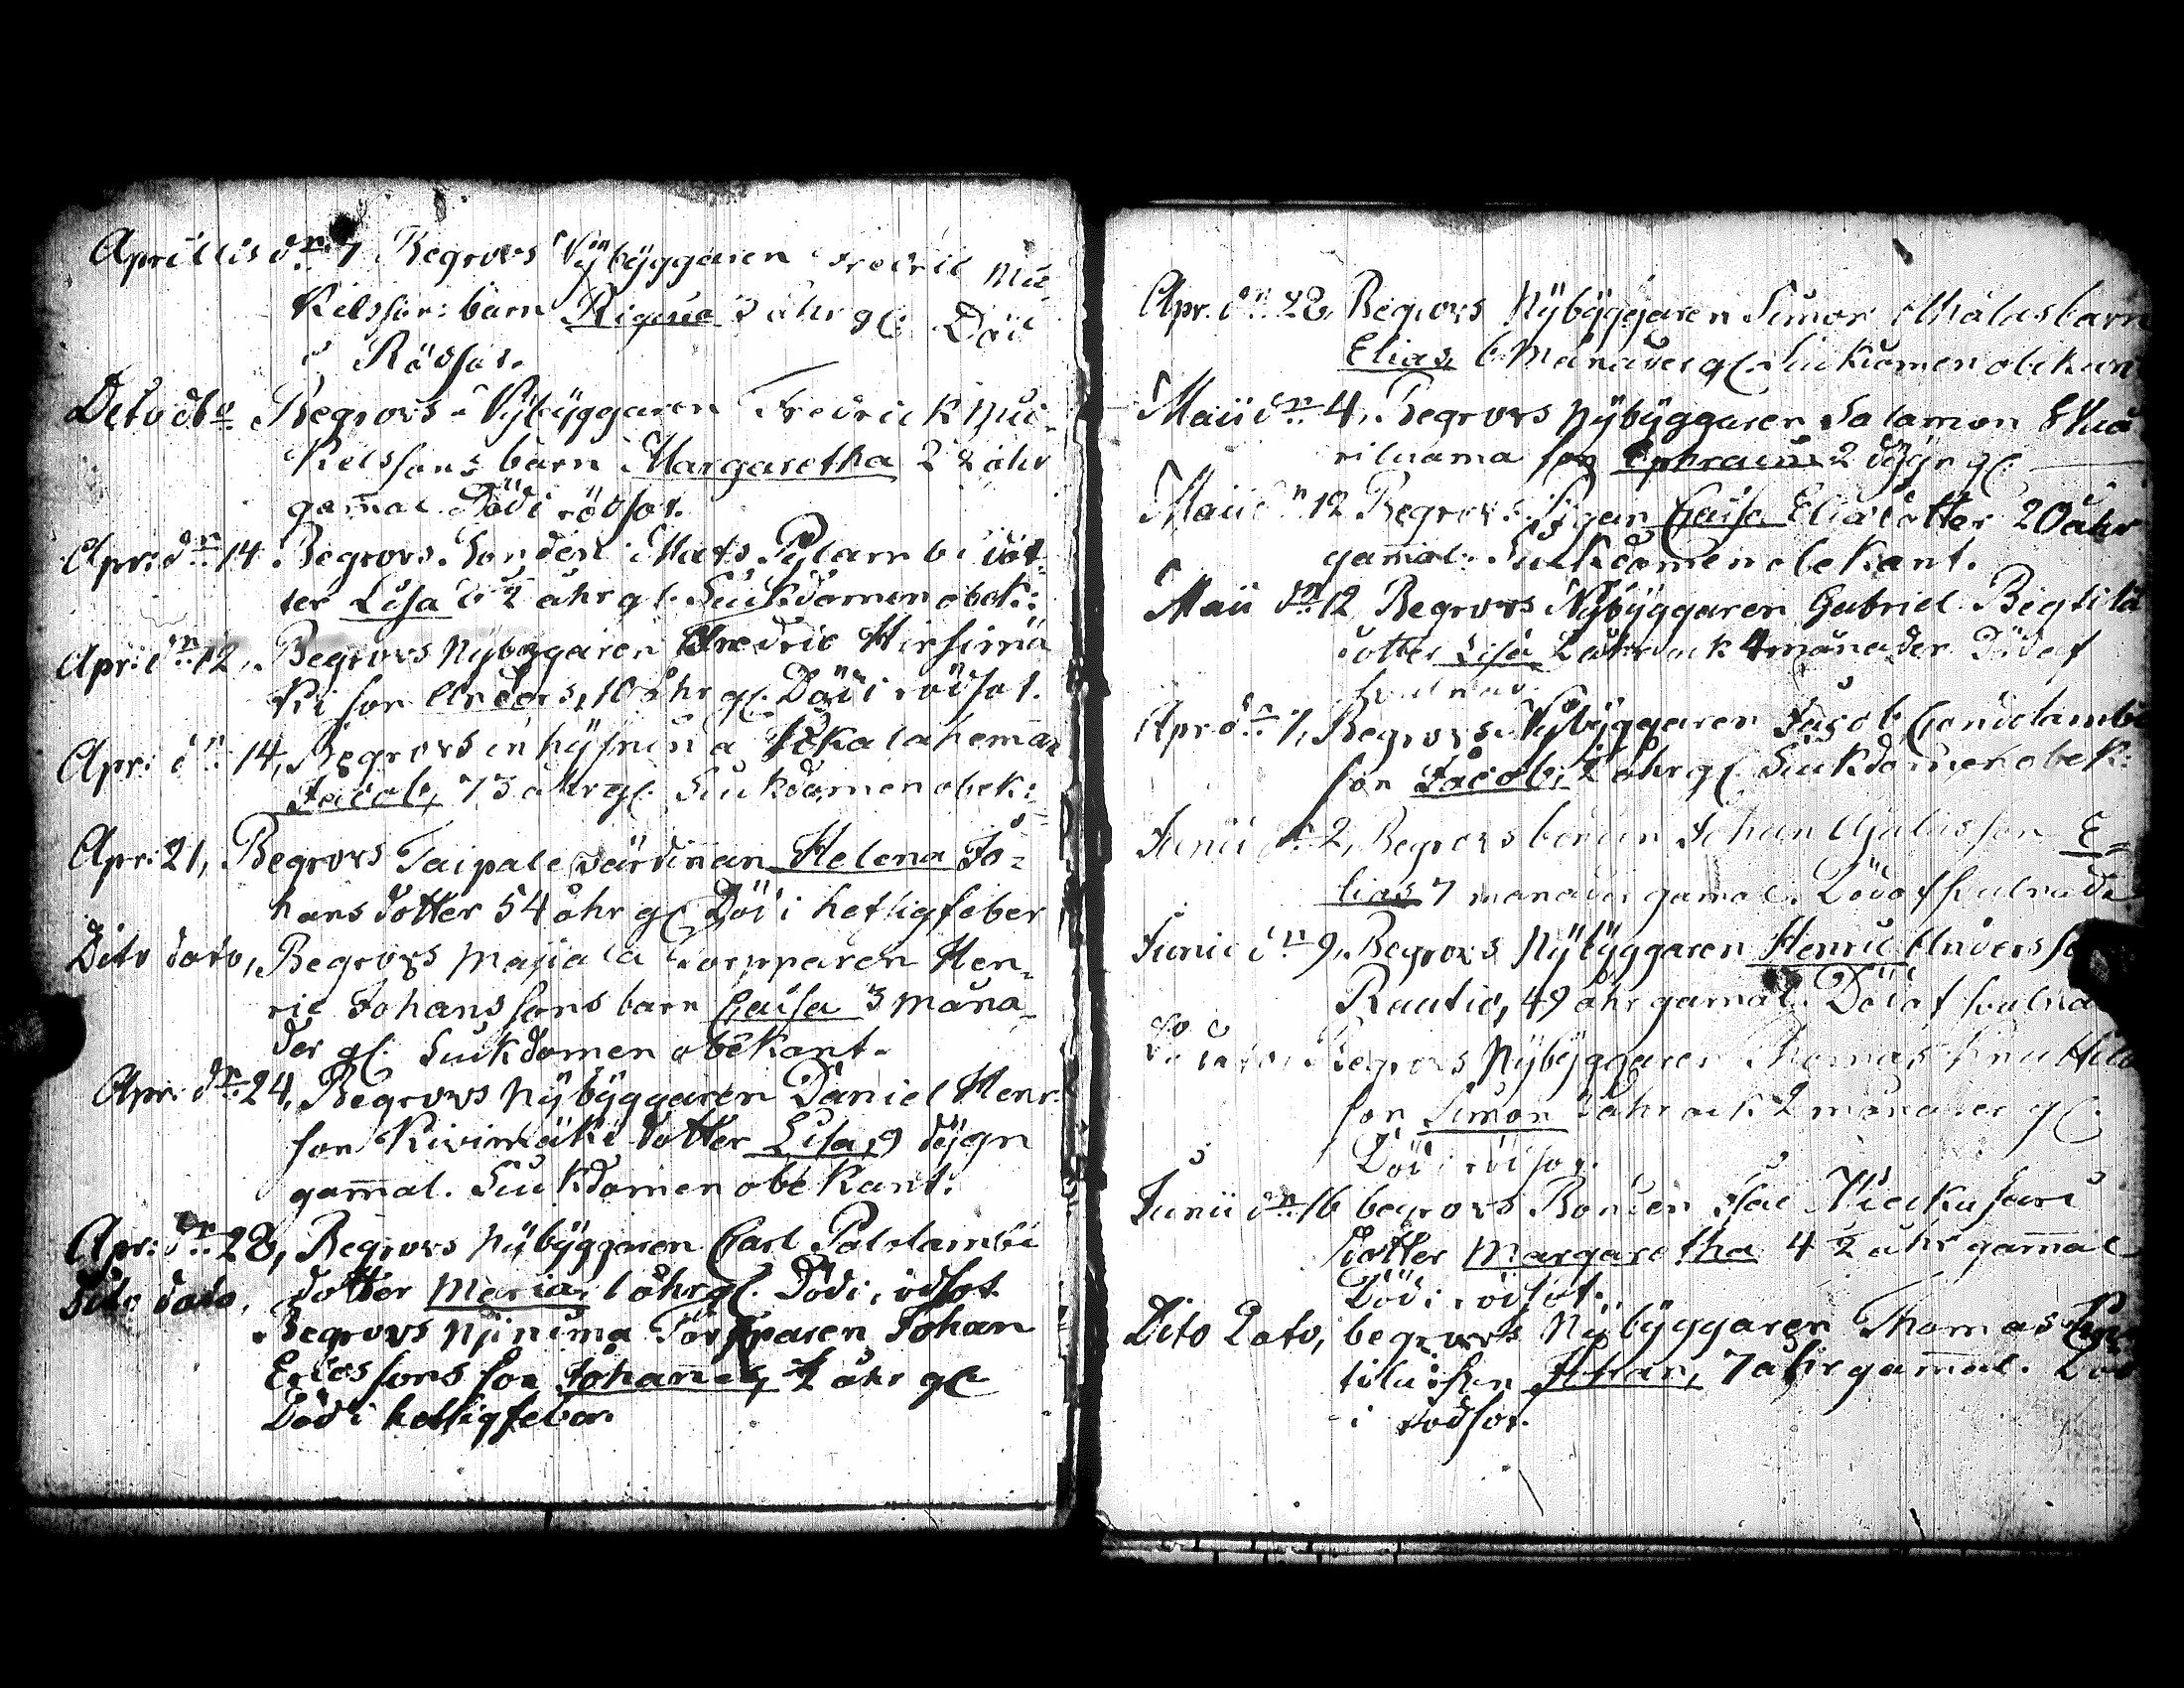 Aprillis dn 7 Begrovs Nÿbÿggaren Fredric Mic
kelssons barn Rigina 3 åhr gl: Död
i Rödsot.
Dito dto Begrovs Nÿbÿggaren Fredrick Mic
kelssons barn Margaretha 2 ½ åhr
gam̄al Död i rödsot.
Apr: dn 14 Begrovs Bonden Mats Pylam bi dot
ter Lisa 6 ½ åhr gl. Siukdomen obek:
Apr: dn 12, Begrovs Nÿbÿggaren Fredric Hirsimä
ki son Anders, 10 åhr gl. Död i rödsot.
Apr: dn 14, Begrovs inhÿsning a Pokala hem̄an
Jacob, 73 åhr gl. Siukdomen obek:
Apr: 21, Begrovs Taipale värdinnan Helena Jo=
hansdotter 54 åhr gl Död i hetsigfeber
Dito dato, Begrovs Masiala Torpparen Hen=
ric Johanssons barn Caisa 3 måna=
der gl: Siukdomen obekant.
Apr: dn 24, Begrovs Nÿbÿggaren Daniel Henr:
son Kivimäki dotter Lisa, 9 dÿgn
gam̄al. Siukdomen obekant.
Apr: dn 28, Begrovs Nÿbÿggaren Carl Palolambi
dotter Maria, 1 åhr gl. Död i rödsot
Dito dato,
Begrovs Niinima Torpparen Johan
Ericssons son Johannes, ½ åhr gl
Död i hetsigfeber.
Apr. dn 28, Begrovs Nÿbÿggaren Simon barn
Elias, 6 Månader gl. Siukdomen obekan
Maii dn 4, Begrovs Nÿbÿggaren Salamon
son Ephraim 2 dÿgn gl:
Maii dn 12 Begrovs Pigan Caisa Eliædotter 20 åhr
gam̄al. Siukdomen obekant.
Maii dn 12 Begrovs Nÿbÿggaren Gabriel
dotter Lisa 2 åhr ock 4 månader Död af

Apr dn 7, Begrovs Nÿbÿggaren Jacob
son Jacob, 2 åhr gl. Siukdomen obek:
Junii dn 2, Begrovs bonden Johan son E=
lias 7 månader gam̄al. Död af
Junii dn 9, Begrovs Nÿbÿggaren Henric Anders
Rautio, 49 åhr gam̄al. Död af
dato Begrovs Nÿbÿggaren Thomas
son Simon åhr ock 2 månader gl.
Död i rödsot.
Junii dn 16 begrovs Bonden Isac
dotter Margaretha 4 ½ åhr gam̄al
Död i rödsot.
Dito Dato, begrovs Nÿbÿggaren Thomas
son Johan, 7 åhr gam̄al. Död
i rödsot.